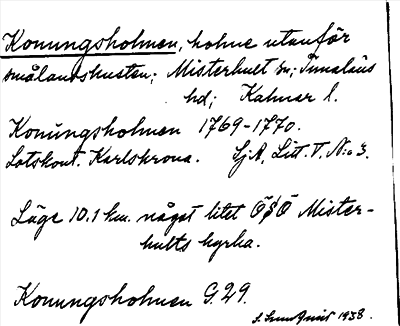 Konungsholmen, holme utanför
smålandskusten; Misterhult sn; Tunaläns
hd; Kalmar l.
Konungsholmen 1769-1770.
Lotskont. Karlskrona. SjA, Litt. T. N:o 3.
Läge 10.1 km. något litet ÖSÖ Mister-
hults kyrka.
Konungsholmen G.29.
1938.